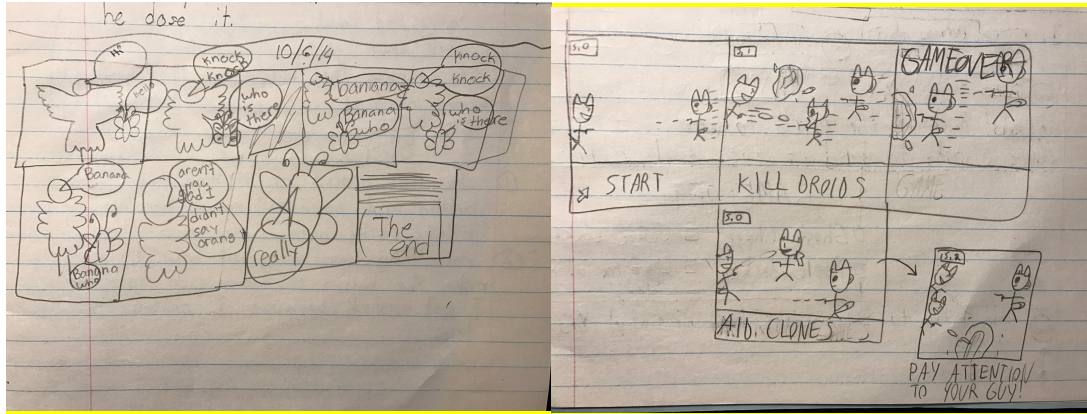 he dose it.
10/6/19
Hi
hello
Knock
Knock
who
is
there
banana
Banana
who
Knock
Knock
who
is there
Banana
Banana
who
aren't
you
glad I
didn't
say
orang
really
The
end
5.0
5.1
GAMEOVER
START
KILL DROIDS
5.0
A.I.D. CLONES
5.2
PAY ATTENTION
TO YOUR GUY!